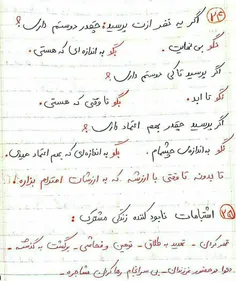 ۲۴) اگر یه نفر ازت پرسید: چقدر دوستم داری؟
نگو بی نهایت. بگو به اندازه ای که هستی.
اگر پرسید تا کی دوستم داری؟
نگو تا ابد. بگو تا وقتی که هستی.
اگر پرسید چقدر بهم اعتماد داری؟
نگو به اندازه‌ی چشمام. بگو به اندازه‌ای که بهم اعتماد میدی.
تا بدونه تا وقتی با ارزشه که به ارزشات احترام بزاره!
۲۵) اشتباهات نابود کننده زندگی مشترک:
قهر کردن - تهدید به طلاق - توهین و فحاشی - برگشت به گذشته -
دعوا در حضور فرزندان - بی سرانجام رها کردن مشاجره -